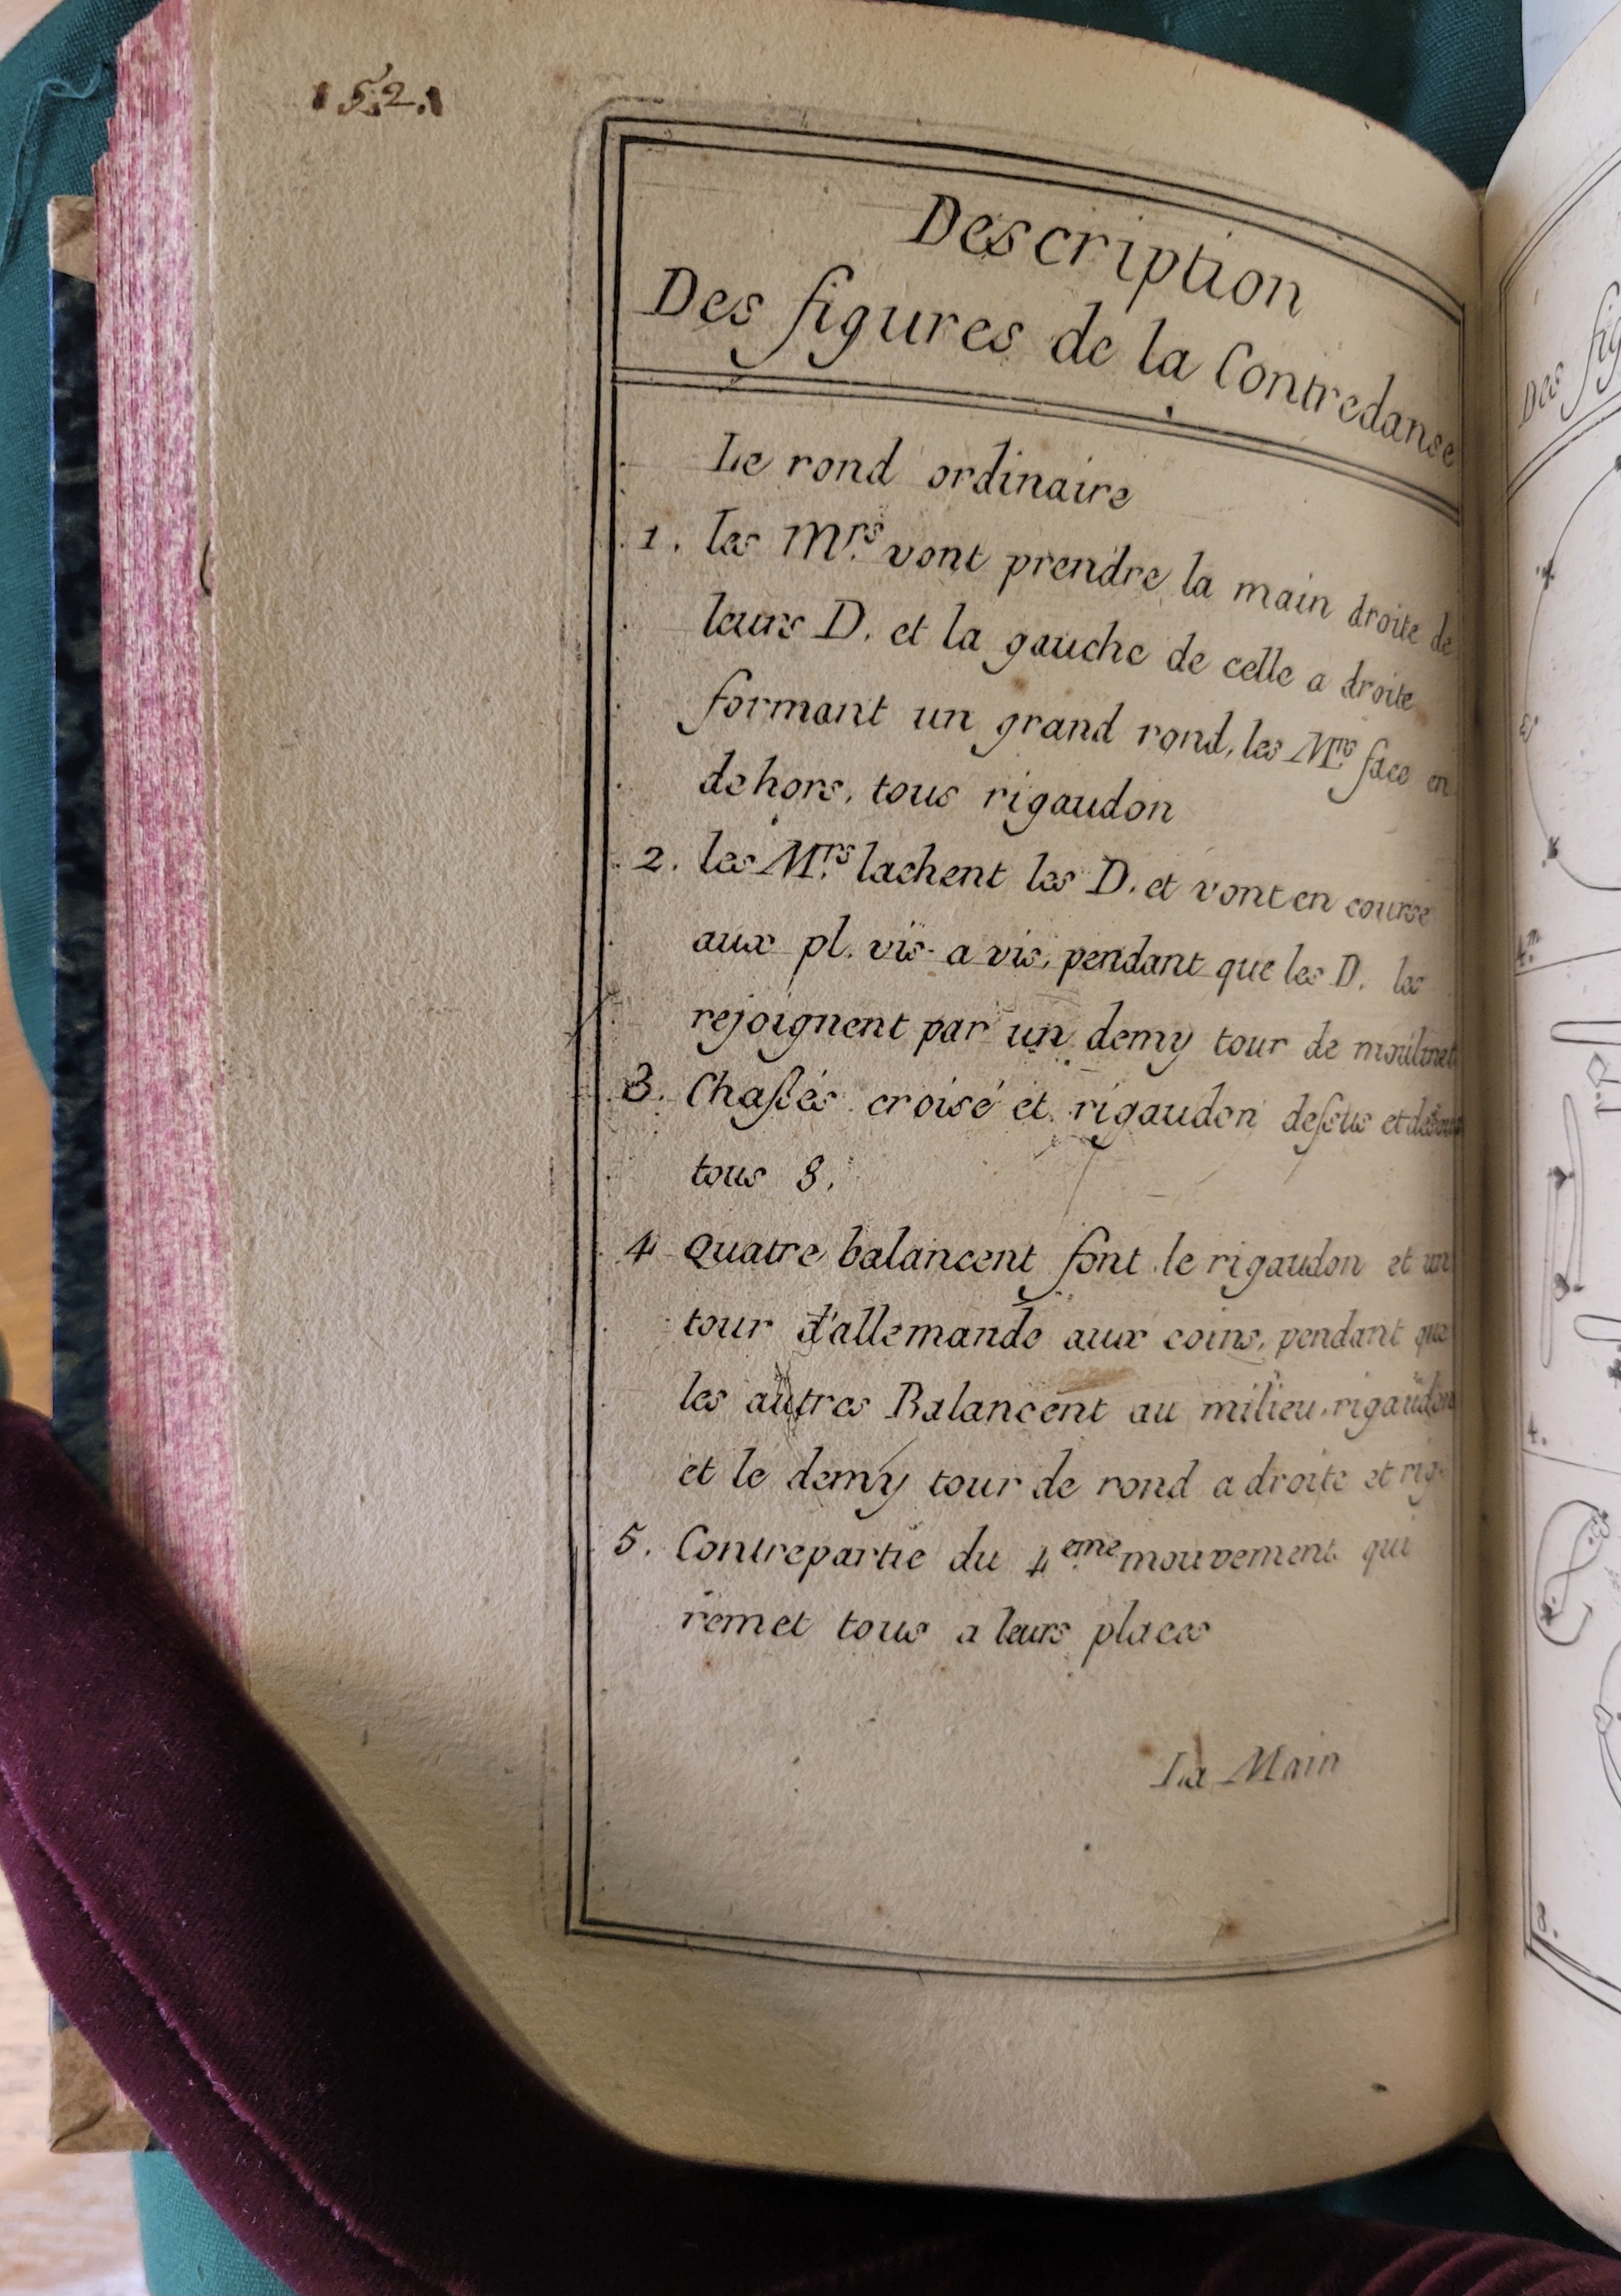 152.
Description
Des figures de la Contredanse
Le rond ordinaire
1. les Mrs. vont prendre la main droite de
leurs D. et la gauche de celle a droite
formant un grand rond, les Mrs. face en
dehors, tous rigaudon
2. les Mrs. lachent les D. et vont en course
aux pl. vis-a vis, pendant que les D. les
rejoignent par un demy tour de moulinet
3. Chaſsés croisé et rigaudon deſsus et dessous
tous 8.
4 Quatre balancent font le rigaudon et un
tour d'allemande aux coins, pendant que
les autres Balancent au milieu, rigaudon
et le demy tour de rond a droite et rig
5. Contrepartie du 4eme. mouvement qui
remet tous a leurs places
La Main
Des fig
4.